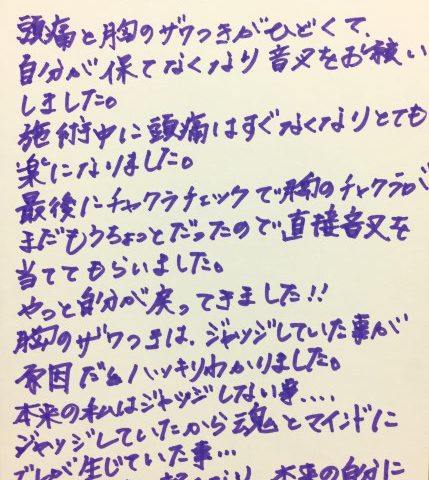 頭痛と胸のザワつきがひどくて、
自分が保てなくなり音叉をお願い
しました。
施術中に頭痛はすぐなくなりとても
楽になりました。
最後にチャクラチェックで胸のチャクラが
まだもうちょっとだったので直接音叉を
当ててもらいました。
やっと自分が戻ってきました!!
胸のザワつきは、ジャッジしていた事が
原因だとハッキリわかりました。
本来の私はジャッジしない事....
ジャッジしていたから魂とマインドに
ブレが生じていた事...
本来の自分に